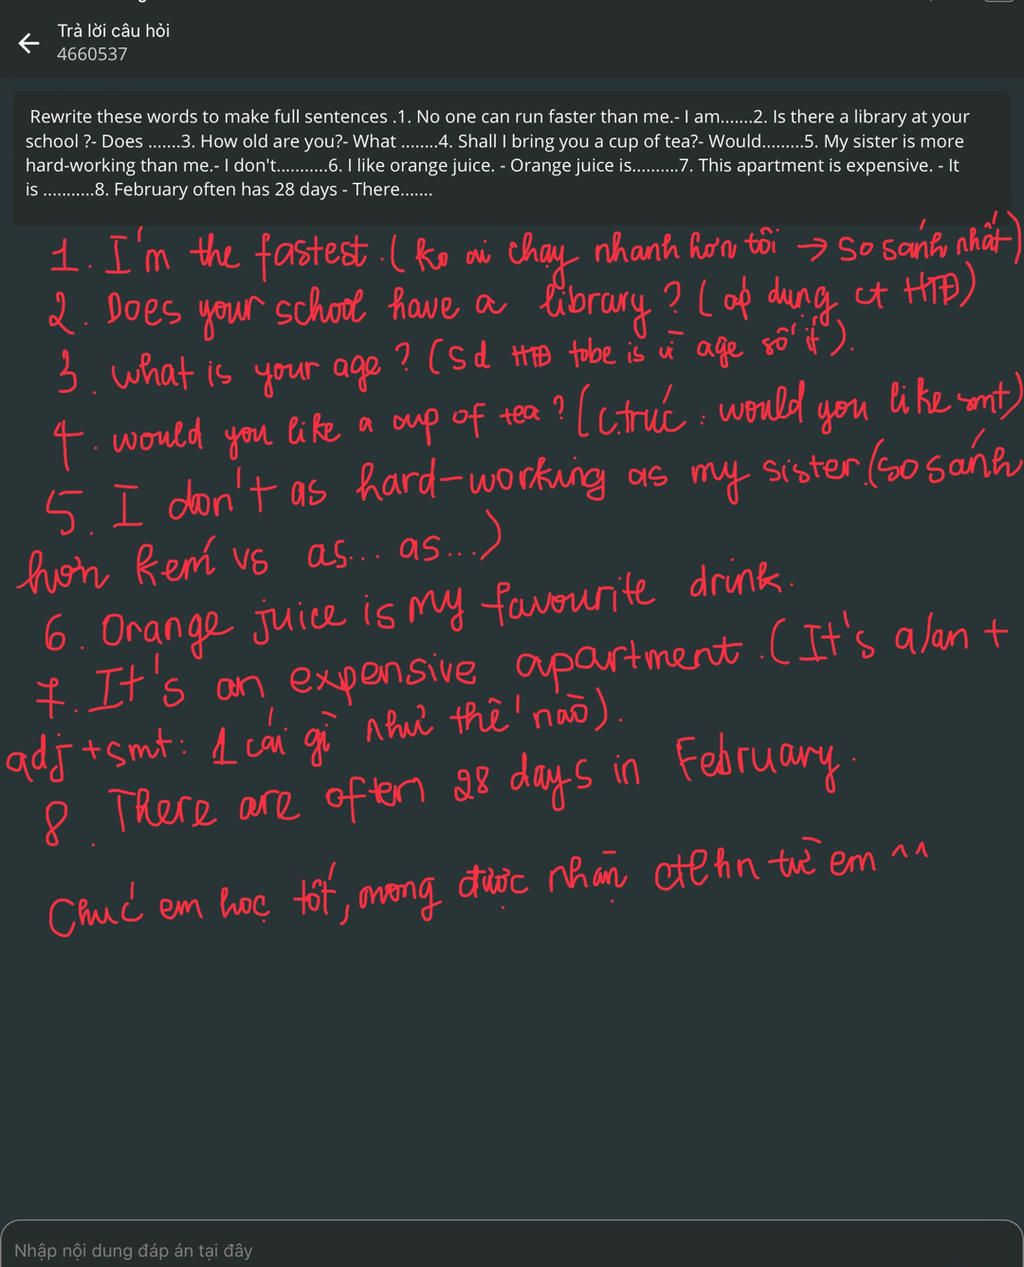 Trả lời câu hỏi
4660537
Rewrite these words to make full sentences .1. No one can run faster than me.- I am.......2. Is there a library at your
school ?- Does .......3. How old are you?- What ........4. Shall I bring you a cup of tea?- Would.........5. My sister is more
hard-working than me.- I don't...........6. I like orange juice. - Orange juice is..........7. This apartment is expensive. - It
is ...........8. February often has 28 days - There.......
1. I'm the fastest. ( ko ai chạy nhanh hơn tôi → so sánh nhất)
2. Does your school have a library ? ( áp dụng ct HTĐ)
3. what is your age ? (sd HTĐ tobe is vì age số ít).
4. would you like a cup of tea ? ( c.trúc : would you like smt)
5. I don't as hard-working as my sister.(so sánh
hơn kém vs as... as...)
6. Orange juice is my favourite drink.
7. It's an expensive apartment. ( It's a/an +
adj + smt: 1 cái gì như thế nào).
8. There are often 28 days in February.
Chúc em học tốt, mong được nhận ctlhn từ em ^^
Nhập nội dung đáp án tại đây